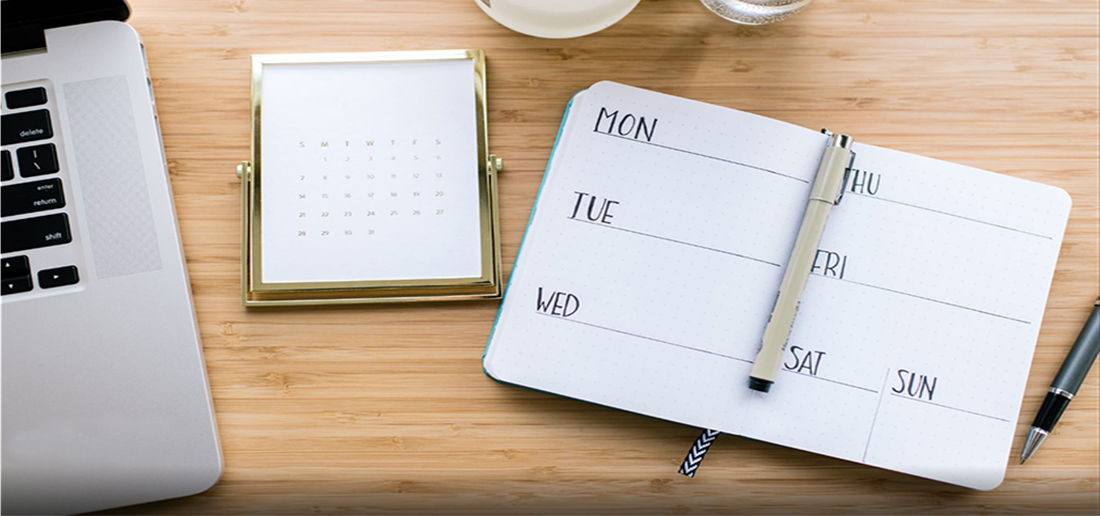 delete
|
\
enter
return
shift
S M T W T F S
1 2 3 4 5 6
7 8 9 10 11 12 13
14 15 16 17 18 19 20
21 22 23 24 25 26 27
28 29 30 31
MON
TUE
WED
THU
FRI
SAT
SUN